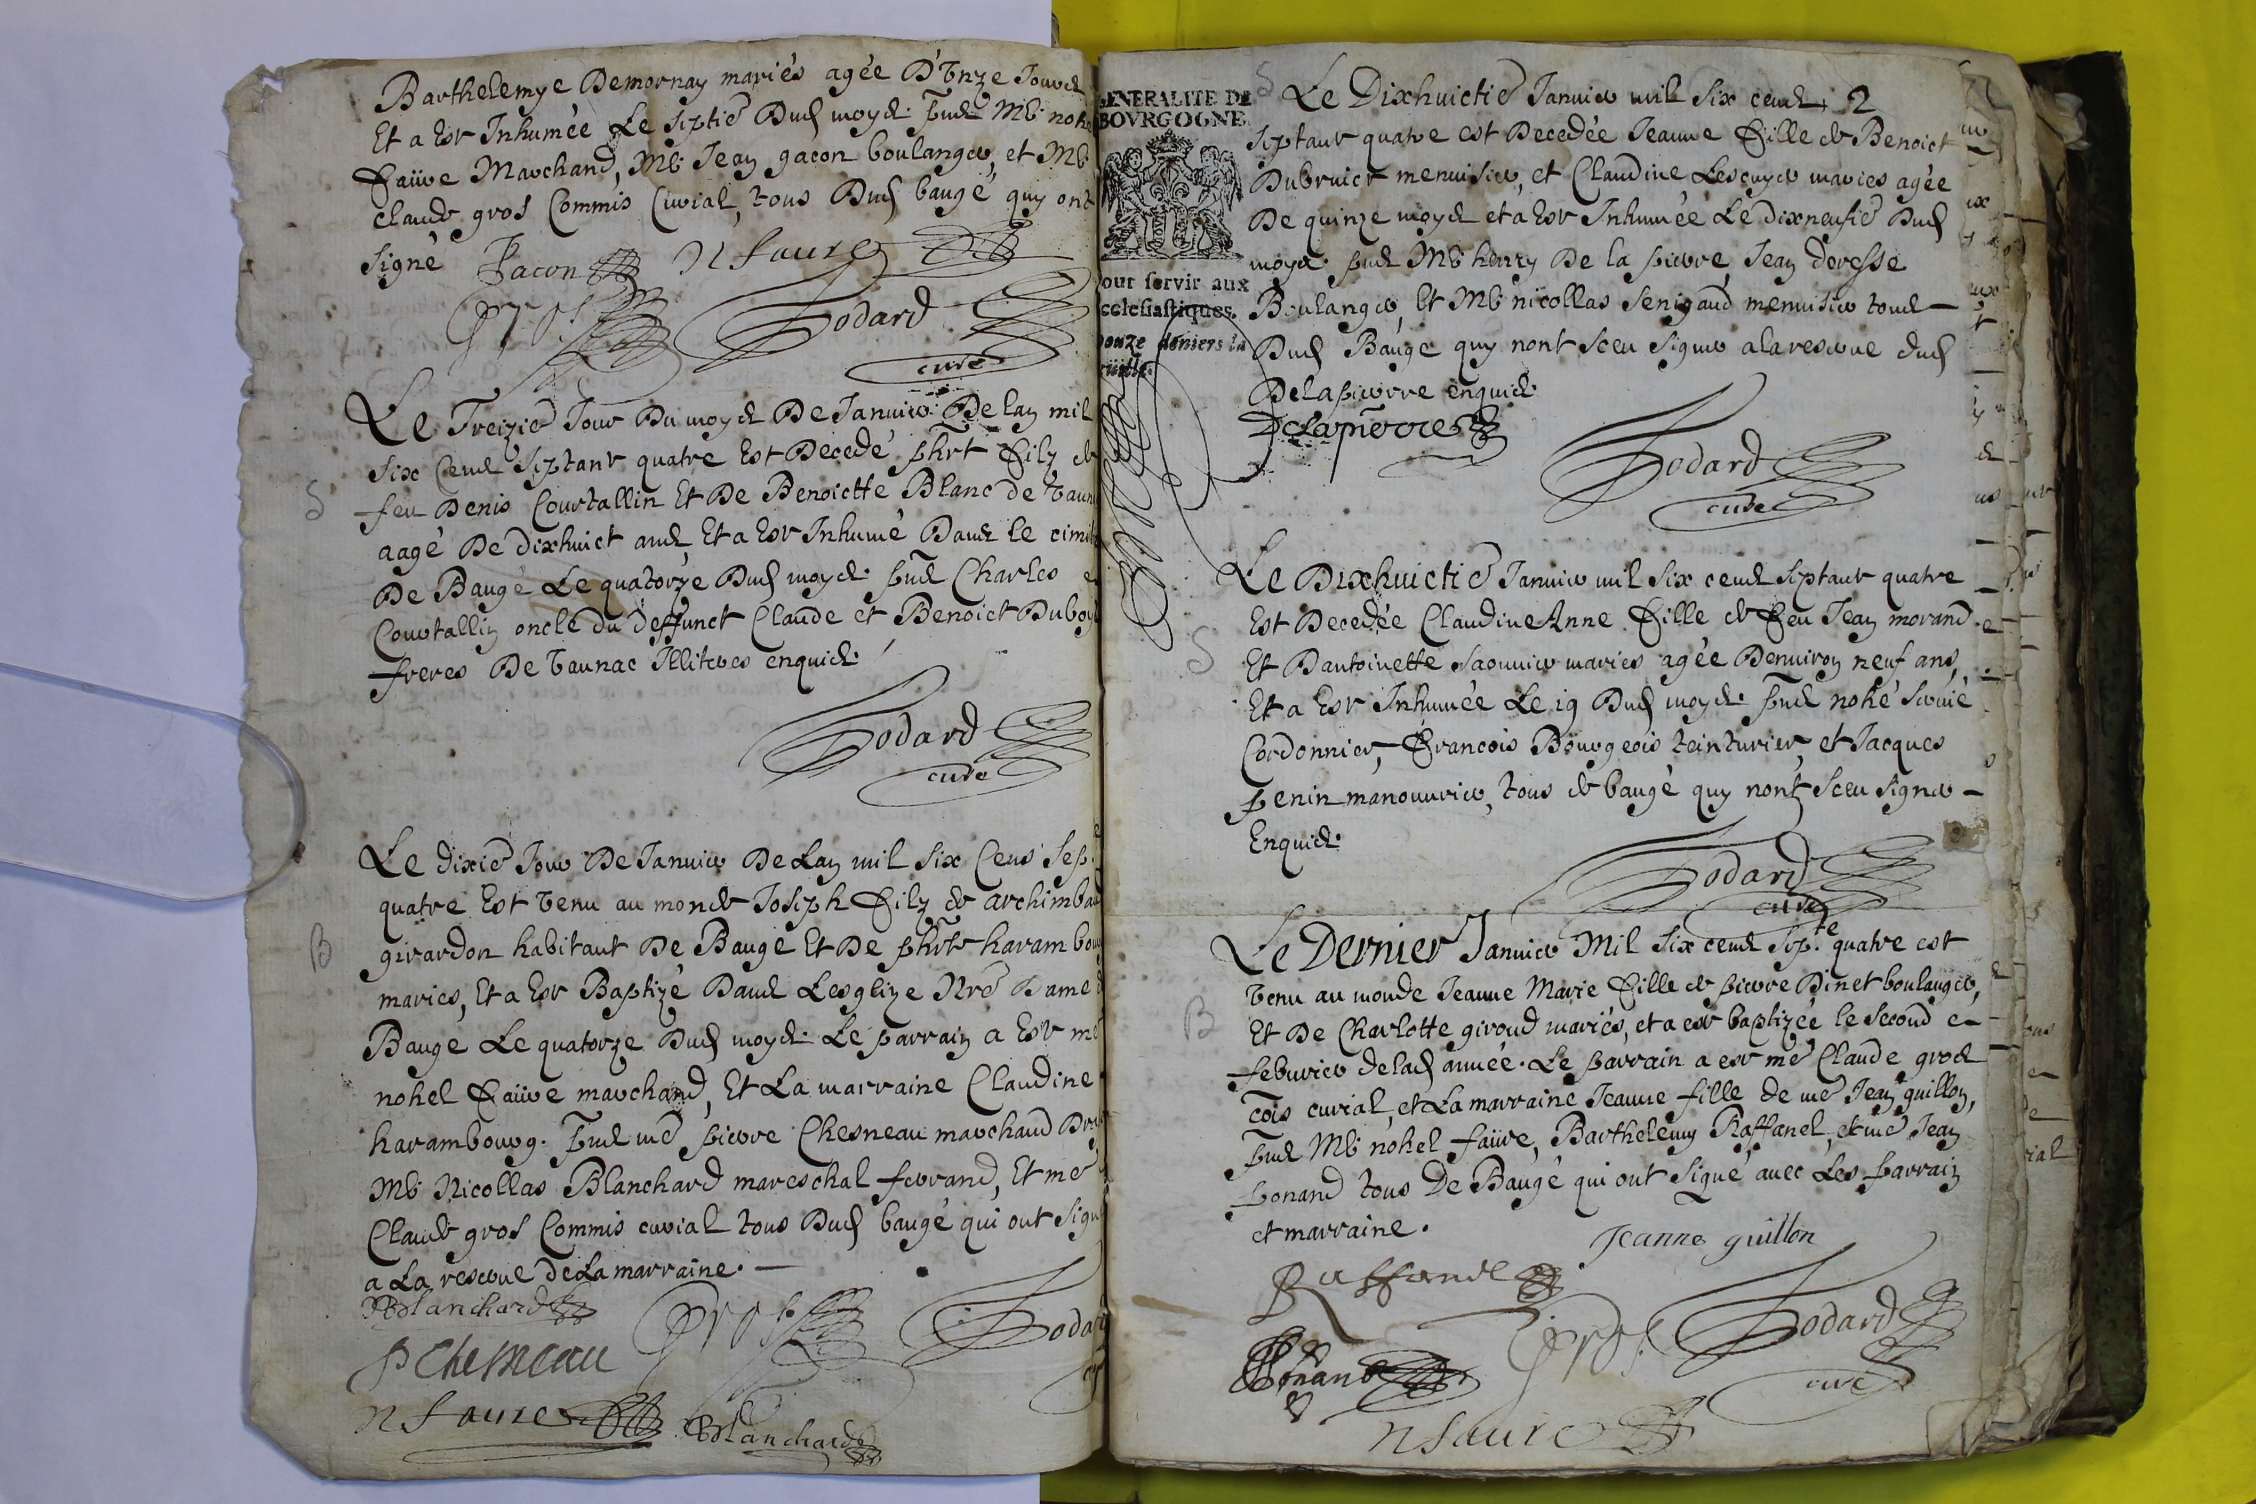 Barthelemye Demornay mariés agée D'Unze Jours
Et a Esté Inhumée Le septié Dud moys. pnts Mr nohel
Faüre Marchand, Mr Jean gacon boulanger, et Mr
claude gros Commis Curial, tous Dud baugé quy ont
signé Jacon n faure
Gros Godard
curé
Le Treizié Jour Du moys De Janvier De lan mil
Six Cens Septante quatre Est Decedé phrt Filz de
S
feu Denis Courtallin Et De Benoictte Blanc de
aagé De dixhuict ans, Et a Esté Inhumé Dans le
De Baugé Le quatorze Dud moys. pnts Charles
Courtallin oncle du deffunct Claude et Benoict Duboys
freres De Vaunac Illiteres enquis.
Godard
curé
Le dixié Jour De Janvier De Lan mil six Cens sep.te
quatre Est Venu au monde Joseph Filz de archimbaud
B
girardon habitant De Baugé Et De phrte harambourg
maries, Et a Esté Baptizé Dans Lesglize Nre Dame
Baugé Le quatorze Dud moys. Le parrain a Esté
nohel Faüre marchand, Et La marraine Claudine
harambourg. Pnts me pierre Chesneau marchand
Mr Nicollas Blanchard mareschal ferrand, Et me
Claude gros Commis curial tous Dud baugé qui ont signé
a La reserve de La marraine.
Blanchard Gros Godard
P Chesneau
n faure Blanchard
GENERALITE DE
BOVRGOGNE
pour servir aux
ecclesiastiques.
douze deniers la
feuille.
S
Le Dixhuictié Janvier mil six cens 2
septante quatre est Decedée Jeanne Fille de Benoict
Dubruict menuisier, et Claudine Lescuyer maries agée
De quinze moys et a Esté Inhumée Le dixneufié Dud
moys. pnts Mr henry De la pierre, Jean deresse
Boulanger, Et Mr nicollas Senigaud menuisier tous
Dud Baugé quy nont sceu signer a la reserve dud
De la pierre enquis.
Delapierre
Godard
curé
Le Dixhuictié Janvier mil six cens septante quatre
Est Decedée Claudine Anne Fille de Feu Jean morand
S
Et Dantoinette Saonnier maries agée Denviron neuf ans,
Et a Esté Inhumée Le 19 Dud moys. pnts nohé
Cordonnier, Francois Bourgeois teinturier, et Jacques
penin manouvrier, tous de baugé quy nont sceu signer
Enquis.
Godard
curé
Le Dernier Janvier Mil six cens sep.te quatre est
Venu au monde Jeanne Marie Fille de pierre Dinet boulanger,
B
Et De Charlotte giroud mariés, et a esté baptizée le second
febvrier de lad année. Le parrain a esté me Claude gros
cois curial, et La marraine Jeanne fille de me Jean guillon,
pnts Mr nohel faüre, Barthelemy Raffanel, et me Jean
ponand tous De Baugé qui ont signé avec Les parrain
et marraine.
Jeanne guillon
Raffanel
Gros Godard
Ponand curé
n faure